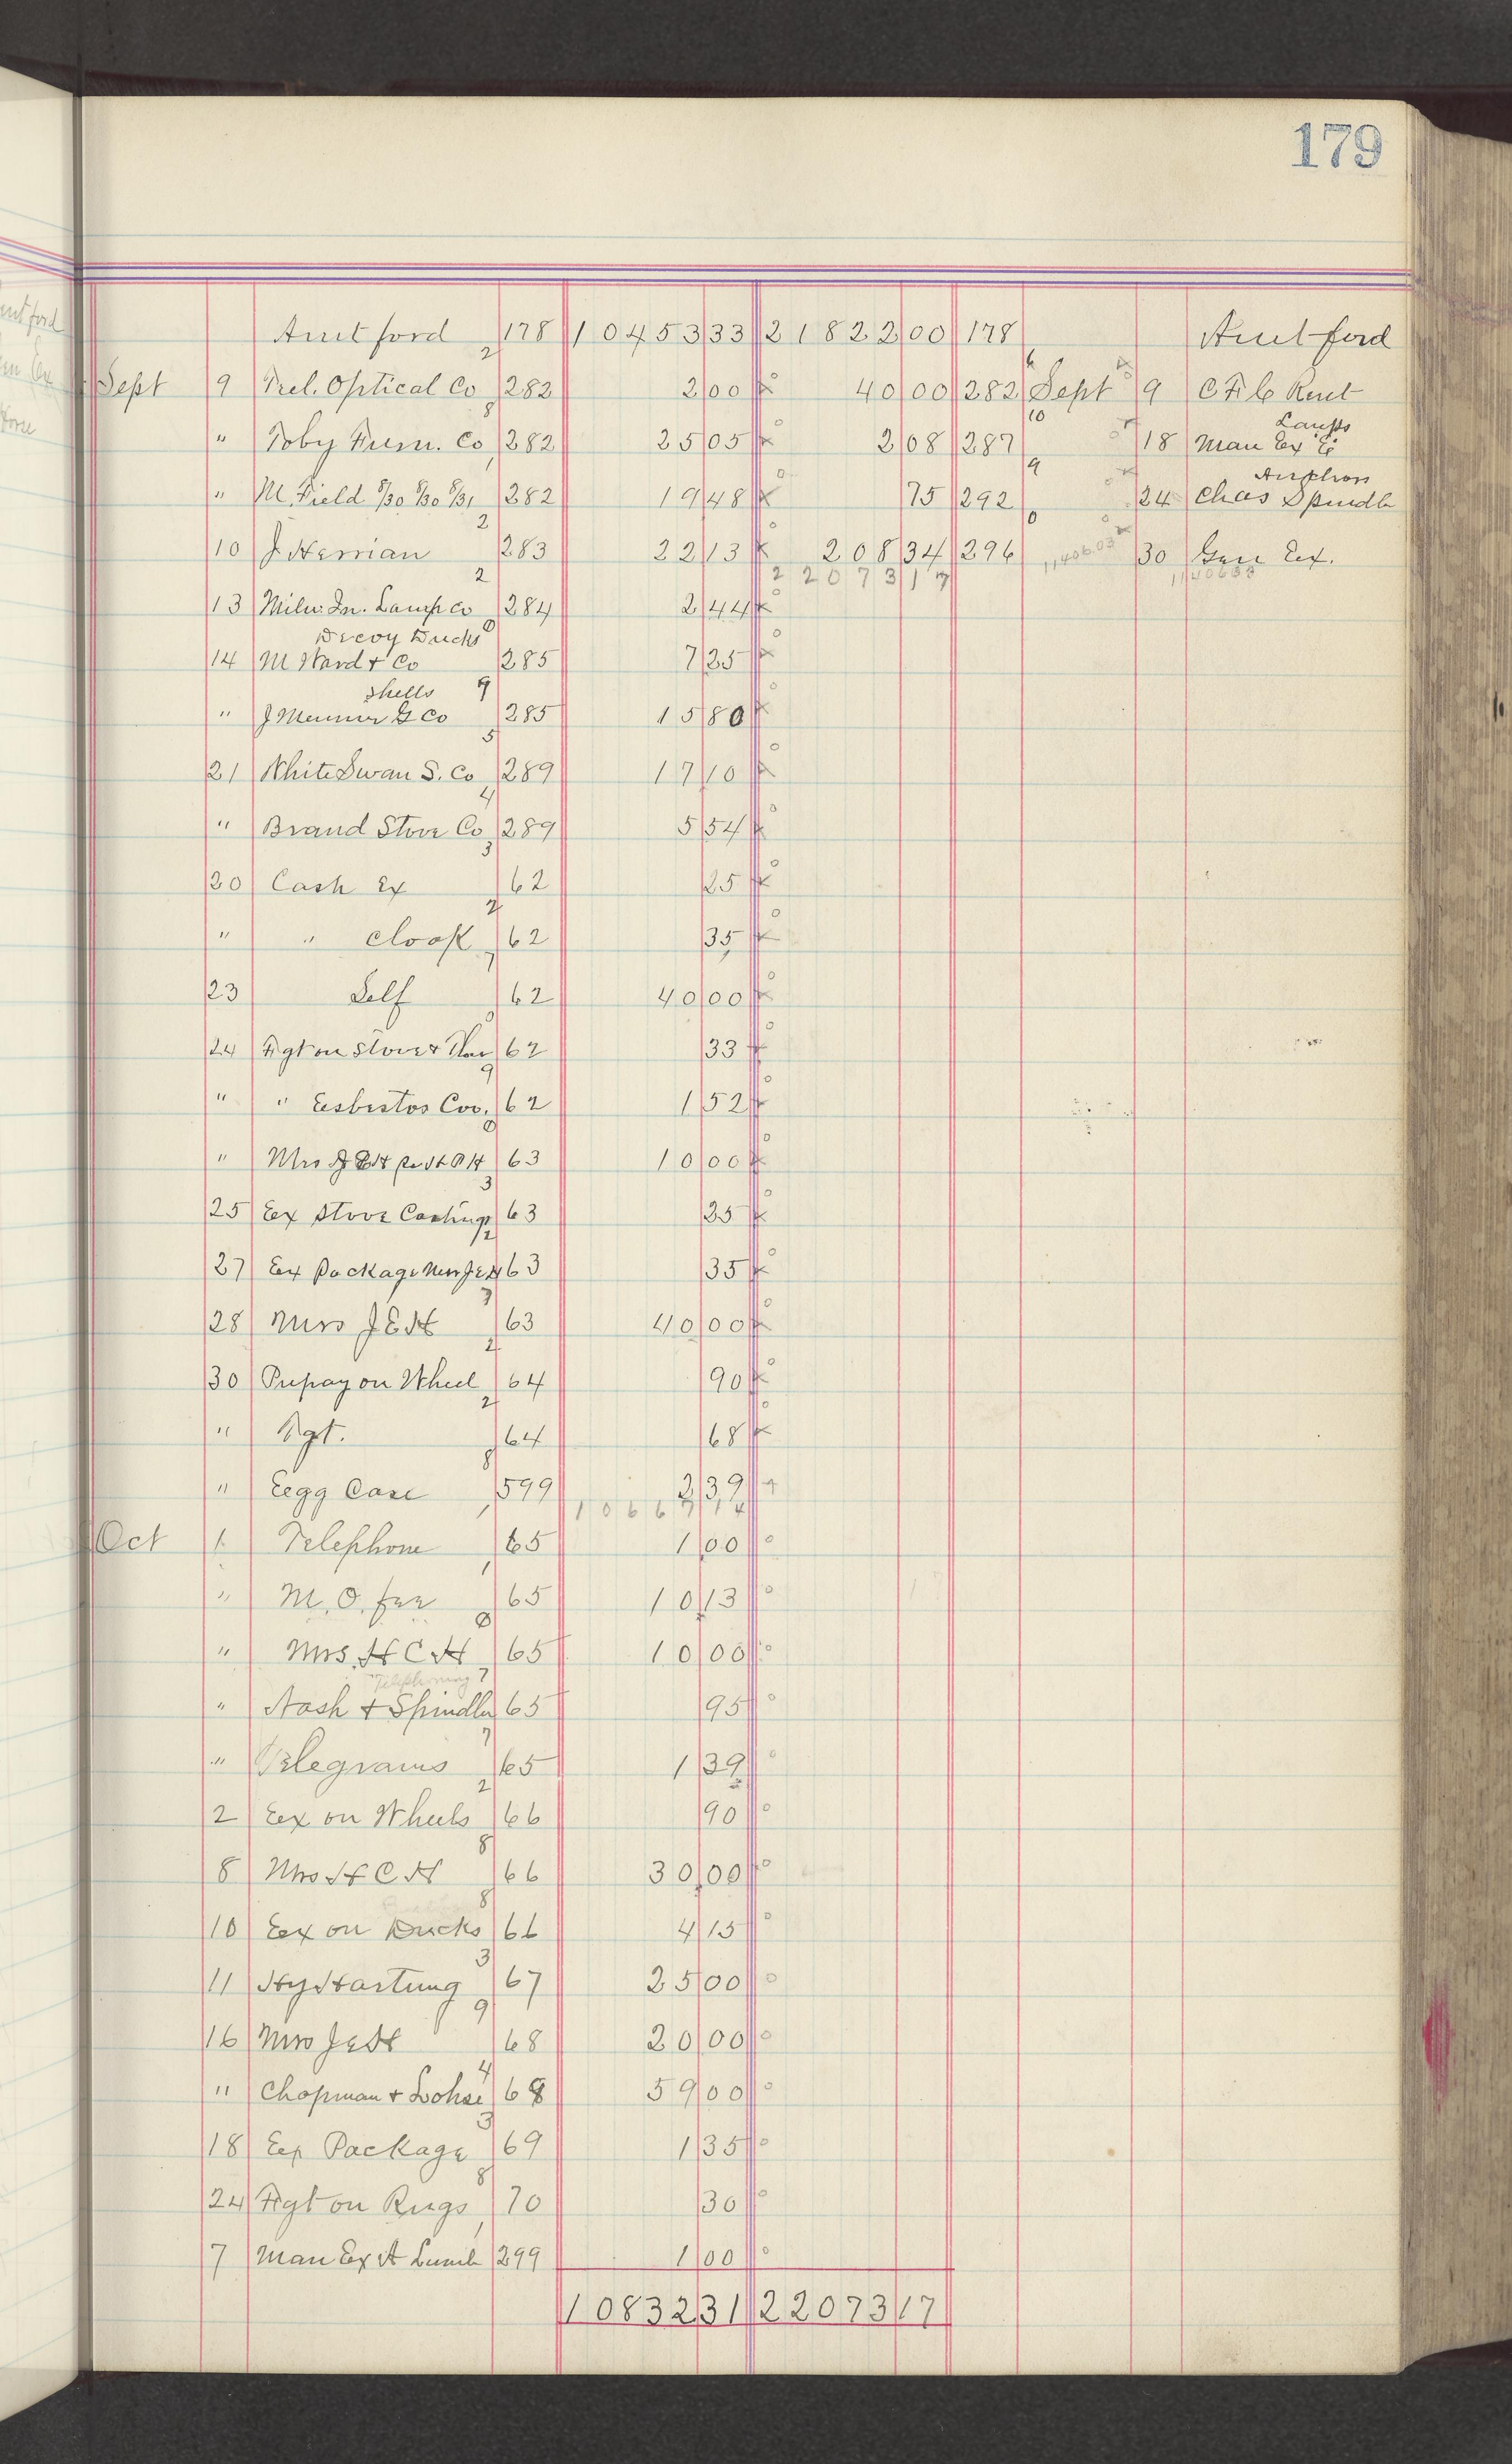 179
Amt ford 178 10453 33 21822 00 178 Amt ford
Sept 9 Prel. Optical Co 282 2 00 40 00 282 Sept 9 Rent
" Toby Furn. Co 282 25 05 2 08 287 18 Man Ex Lamps
" M. Field 8/30 8/30 8/31 282 19 48 75 292 24 Chas Spindle
10 J Herrian 283 22 13 208 34 296 11406.03 30 Gen Ex.
22073 17
13 Milw. In. Lamp Co 284 2 44
Decoy Ducks
14 M Ward & Co 285 7 25
Shells
" J Meunier G Co 285 15 80
21 White Swan S. Co 289 17 10
" Brand Stove Co 289 5 54
20 Cash Ex 62 25
" " Clook 62 35
23 Self 62 40 00
24 Fgt on Stove & 62 33
" " Esbestos Cov. 62 1 52
" Mrs 63 10 00
25 Ex Stove Castings 63 35
27 Ex Package Mrs J E H 63 35
28 Mrs J E H 63 40 00
30 Prepay on Wheel 64 90
" Fgt. 64 68
" Eegg Case 599 2 39
10667 14
Oct 1 Telephone 65 1 00
" M. O. fee 65 10 13
" Mrs. H C H 65 10 00
Telephoning
" Nash & Spindler 65 95
" Telegrams 65 1 39
2 Eex on Wheels 66 90
8 Mrs H C H 66 30 00
10 Eex on Ducks 66 4 15
11 Hy Hartung 67 25 00
16 Mrs J E H 68 20 00
" Chapman & Lohse 68 59 00
18 Eex Package 69 1 35
24 Fgt on Rugs 70 30
7 Man Ex A Lumb 299 1 00
10832 31 22073 17